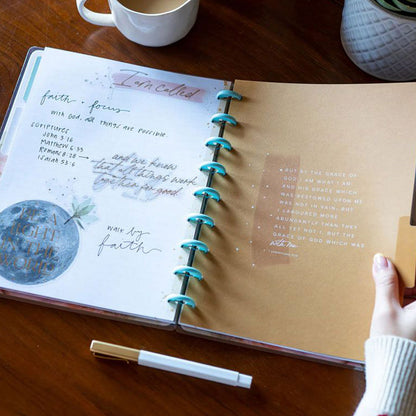 I am called
faith + focus
with God, all things are possible
SCRIPTURES
John 3:16
Matthew 6:33
Romans 8:28
Isaiah 53:6
and we know
that all things work
together for good
walk by
faith
BUT BY THE GRACE OF
GOD I AM WHAT I AM
AND HIS GRACE WHICH
WAS BESTOWED UPON ME
WAS NOT IN VAIN; BUT
I LABOURED MORE
ABUNDANTLY THAN THEY
ALL: YET NOT I, BUT THE
GRACE OF GOD WHICH WAS
with me.